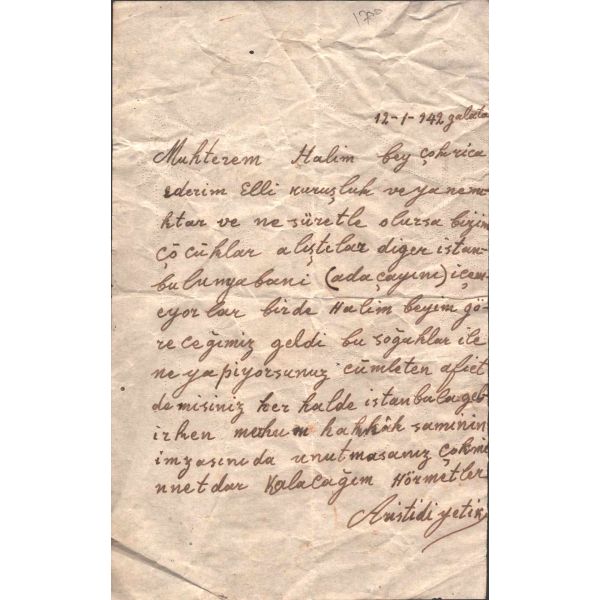 1700
12-1-942 galata
Muhterem Halim bey çok rica
ederim Elli kuruşluk veya nem
ktar ve ne süretle olursa bizim
çöcüklar alıştılar diger istan-
bulun yabani (adaçayını) içem-
eyorlar birde Halim beyim gö-
receğimiz geldi bu soğuklar ile
ne yapiyorsunuz cümleten afiet
demisiniz her halde istanbula gel-
irken mehum hakkâk saminin
imzasını da unutmasanız çok mi
nnetdar kalacağım Hörmetler
Aristidi yetik